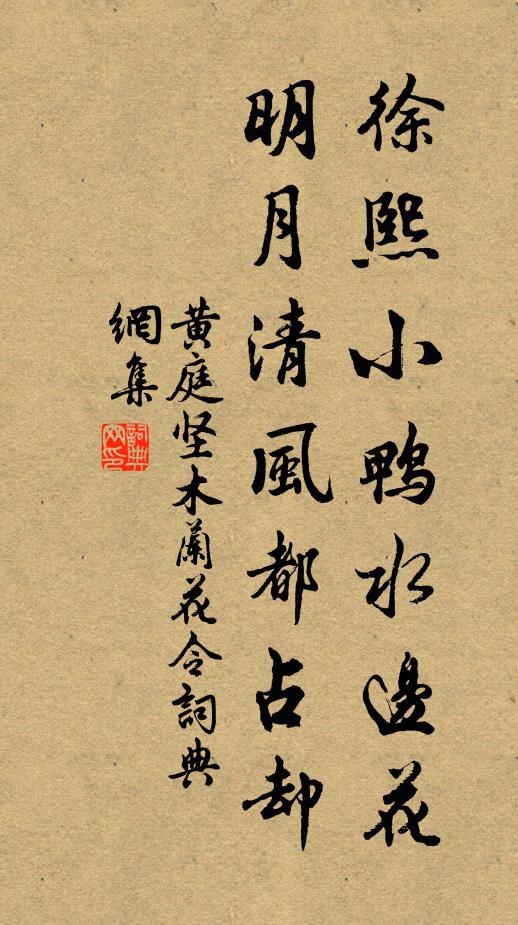 徐熙小鴨水邊花
明月清風都占却
黄庭坚木蘭花令詞典
網集
詞典網印